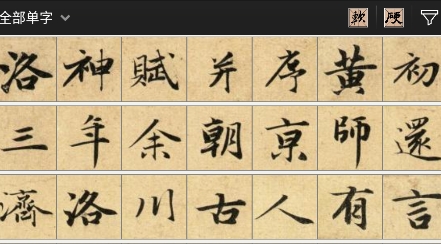 全部单字 軟 硬
洛神賦并序黄初
三年余朝京師還
濟洛川古人有言